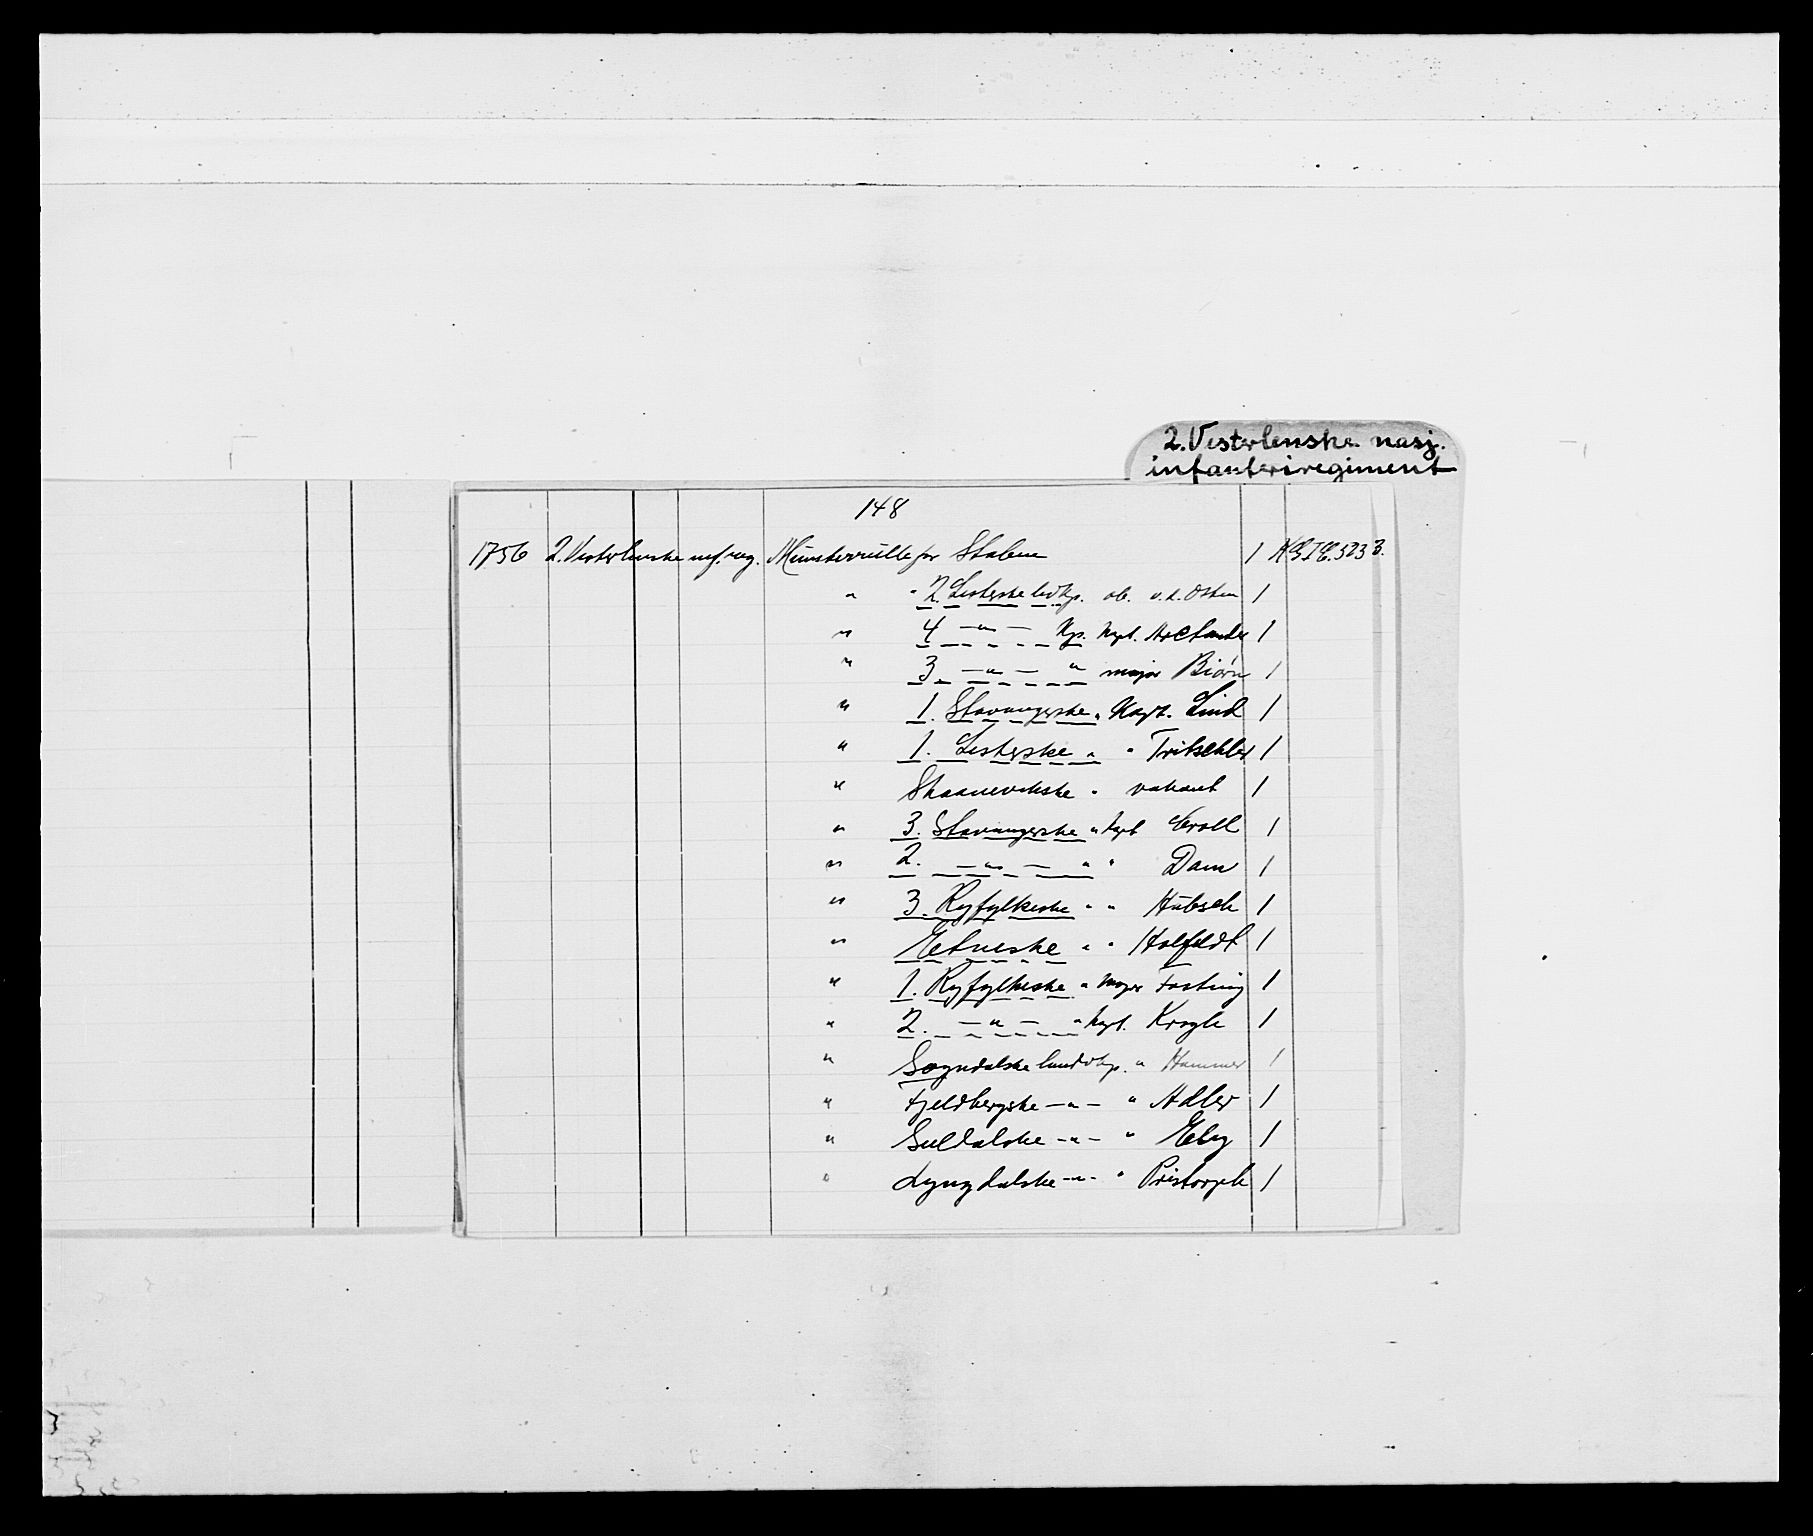 2. Vesterlenske nasj.
infanteriregiment
148
1756 2. Vesterlenske inf. reg. Munsterrulle for Staben 1
" " 2. Listerske livkp. ob. v. d. Osten 1
" 4 —"— Kp. Kapt. 1
" 3 —"— " major Biörn 1
" 1. Stavangerske " Kapt. Lind 1
" 1. Listerske " " Tritschler 1
" Skaanevikske " vakant 1
" 3. Stavangerske " kapt Croll 1
" 2. —"— " " Dam 1
" 3. Ryfylkeske " " Hübsch 1
" Etneske " " Holfeldt 1
" 1. Ryfylkeske " major Fasting 1
" 2. —"— " kapt. Krogh 1
" Sogndalske landvkp. " Hammer 1
" Fjeldbergske —"— " Adler 1
" Suldalske —"— " Eby 1
" Lyngdalske —"— " Pristorph 1